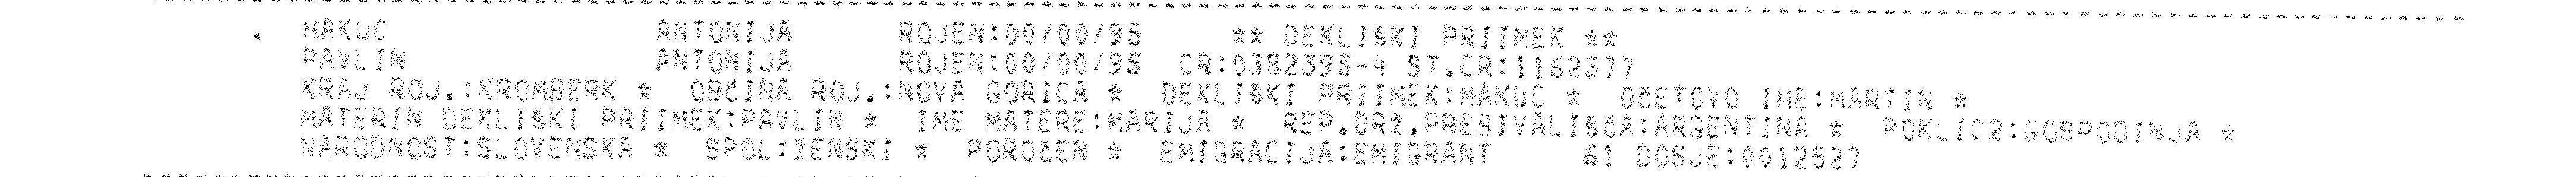 . MAKUC ANTONIJA ROJEN:00/00/95 ** DEKLIŠKI PRIIMEK **
PAVLIN ANTONIJA ROJEN:00/00/95 CR:0382395-4 ST.CR:1162377
KRAJ ROJ.:KROMBERK * OBČINA ROJ.:NOVA GORICA * DEKLIŠKI PRIIMEK:MAKUC * OČETOVO IME:MARTIN *
MATERIN DEKLIŠKI PRIIMEK:PAVLIN * IME MATERE:MARIJA * REP.DRŽ.PREBIVALIŠČA:ARGENTINA * POKLIC2:GOSPODINJA *
NARODNOST:SLOVENSKA * SPOL:ŽENSKI * POROČEN * EMIGRACIJA:EMIGRANT 61 DOSJE:0012527